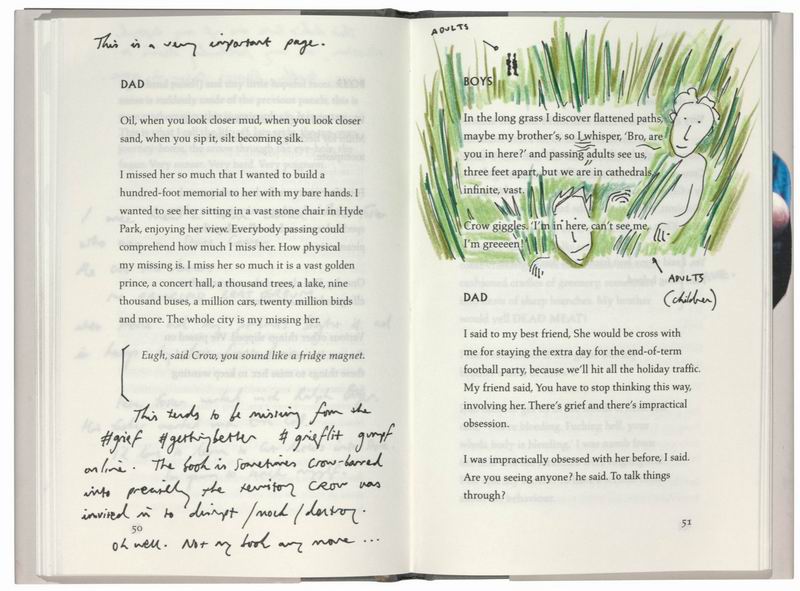 This is a very important page.
DAD
Oil, when you look closer mud, when you look closer
sand, when you sip it, silt becoming silk.
I missed her so much that I wanted to build a
hundred-foot memorial to her with my bare hands. I
wanted to see her sitting in a vast stone chair in Hyde
Park, enjoying her view. Everybody passing could
comprehend how much I miss her. How physical
my missing is. I miss her so much it is a vast golden
prince, a concert hall, a thousand trees, a lake, nine
thousand buses, a million cars, twenty million birds
and more. The whole city is my missing her.
Eugh, said Crow, you sound like a fridge magnet.
This tends to be missing from the
#grief #gettingbetter #grieflit gumpf
online. The book is sometimes crow-barred
into precisely the territory CROW was
invited in to disrupt/mock/destroy.
50
Oh well. Not my book any more ...
ADULTS
BOYS
In the long grass I discover flattened paths,
maybe my brother's, so I whisper, 'Bro, are
you in here?' and passing adults see us,
three feet apart, but we are in cathedrals,
infinite, vast.
Crow giggles. 'I'm in here, can't see me,
I'm greeeen!'
ADULTS
(children)
DAD
I said to my best friend, She would be cross with
me for staying the extra day for the end-of-term
football party, because we'll hit all the holiday traffic.
My friend said, You have to stop thinking this way,
involving her. There's grief and there's impractical
obsession.
I was impractically obsessed with her before, I said.
Are you seeing anyone? he said. To talk things
through?
51